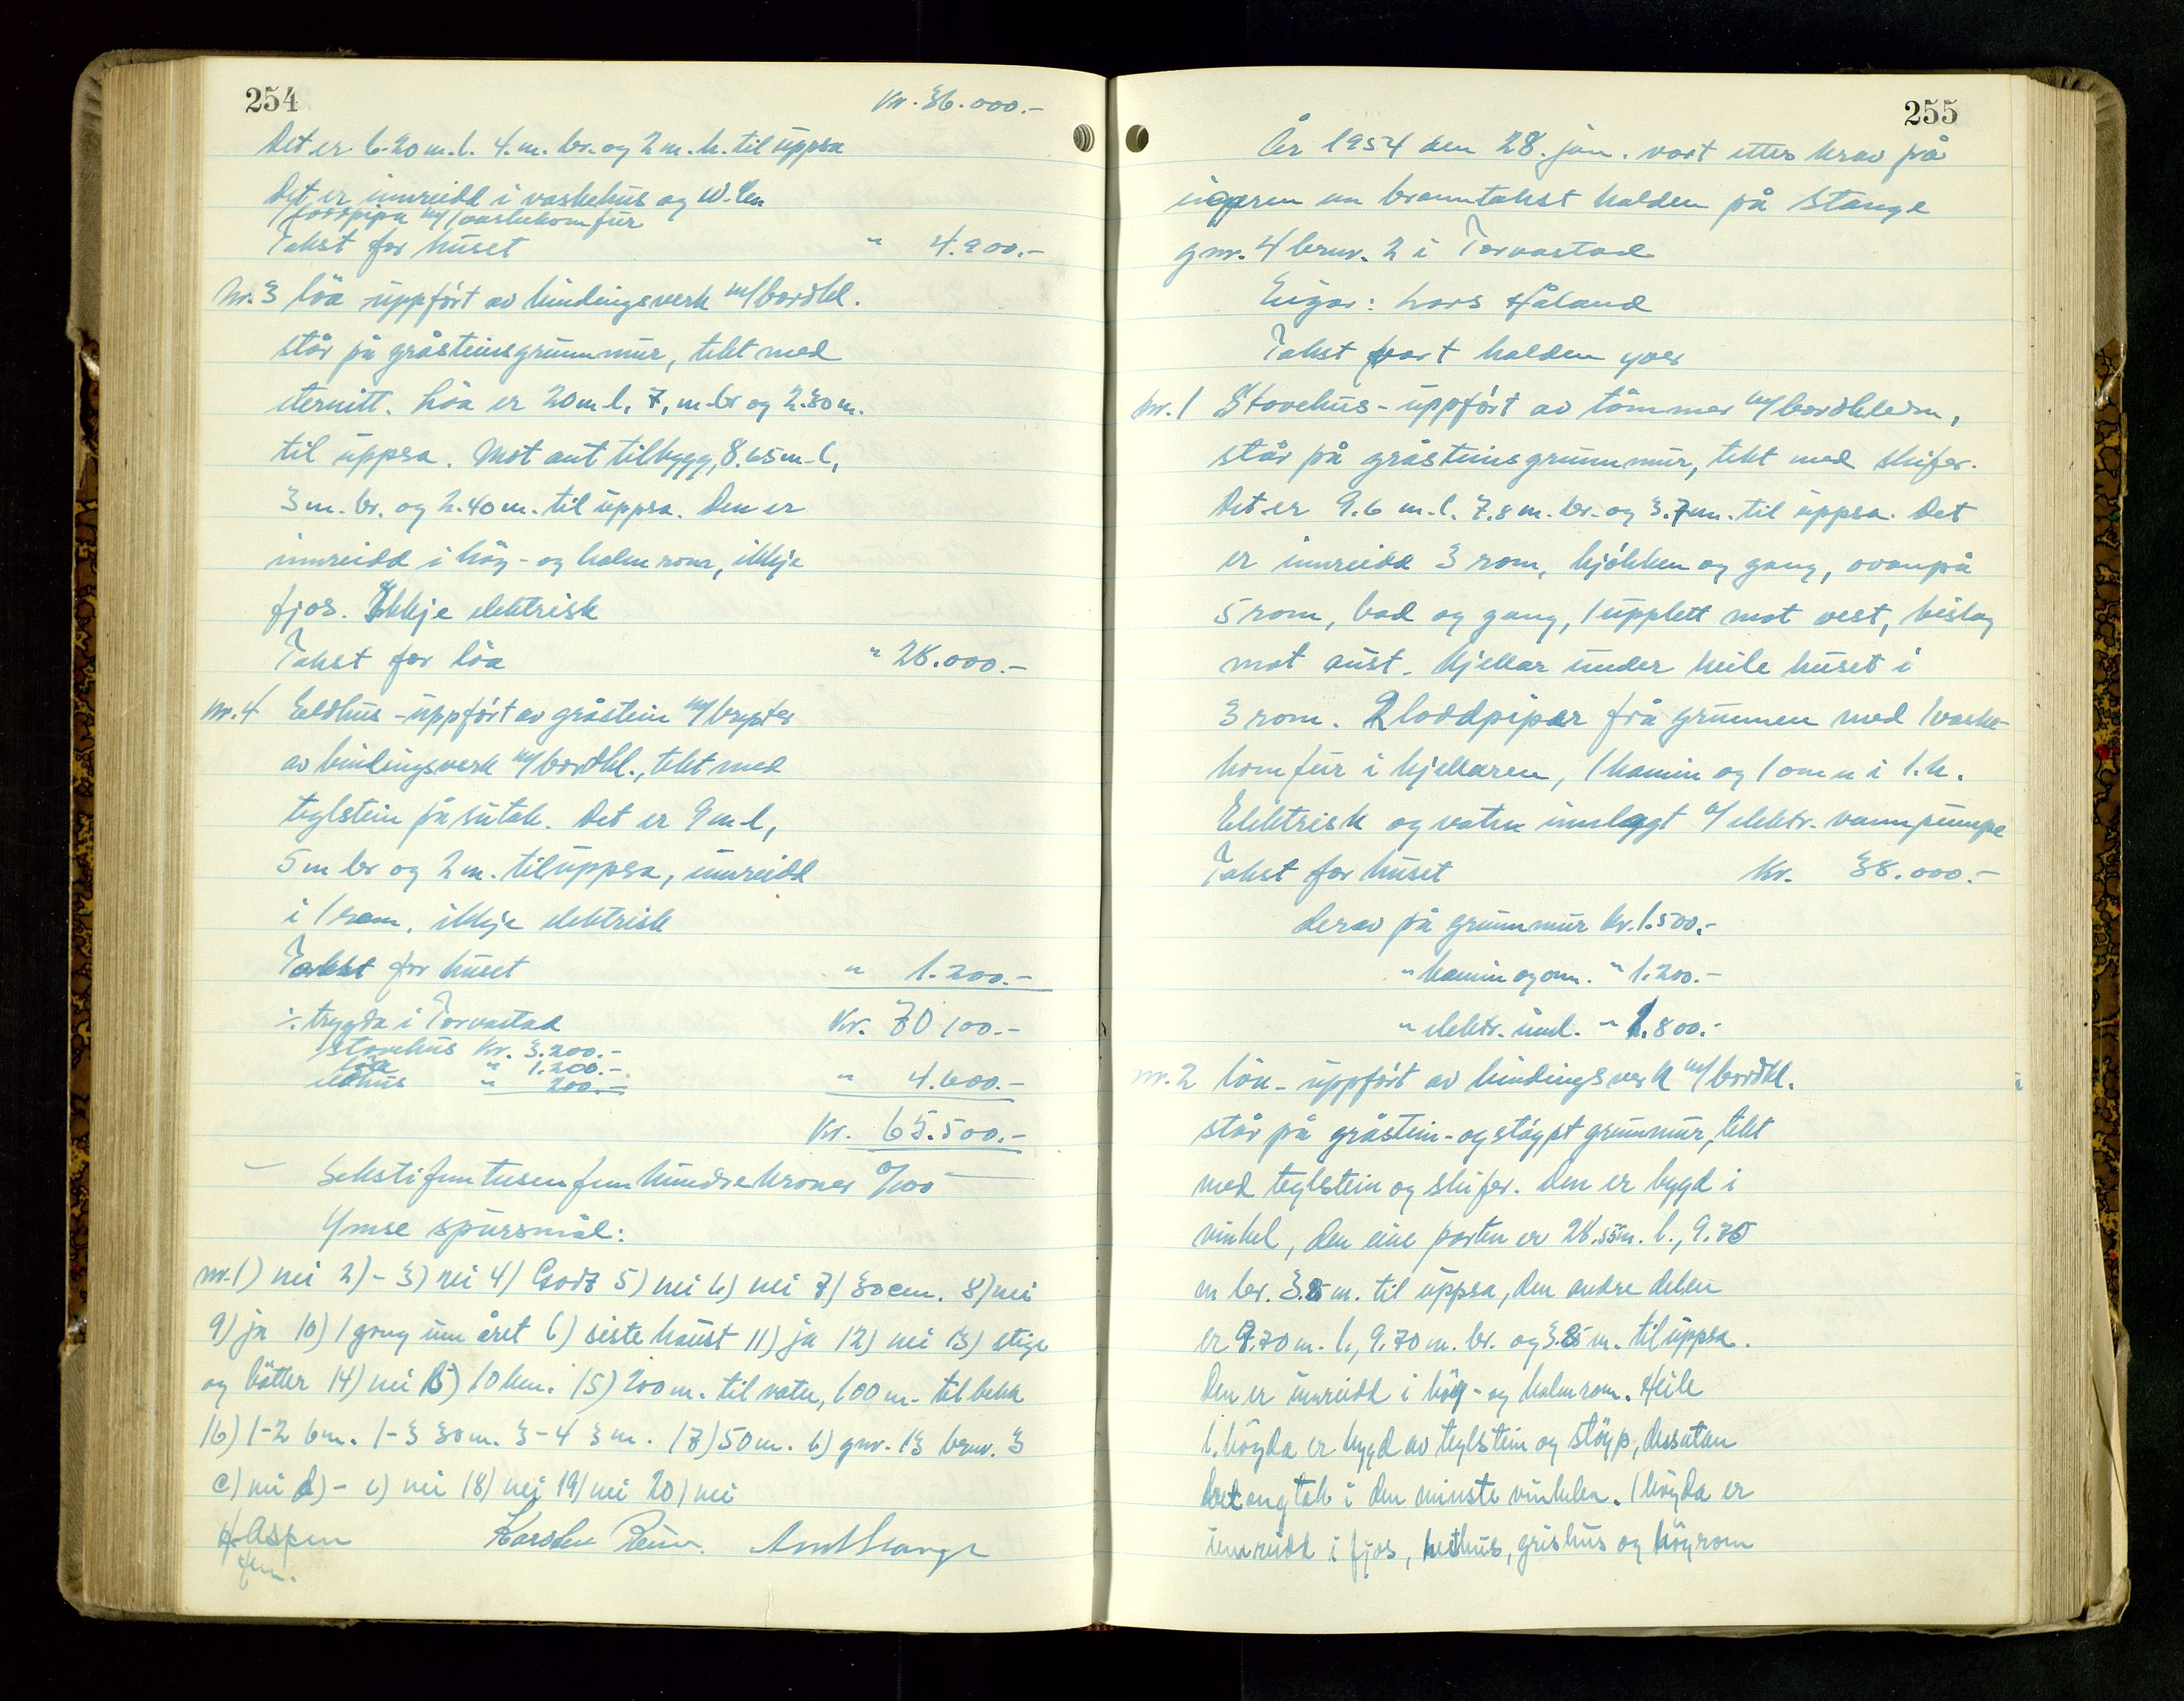 254
Kr. 36.000.-
Det er 6.20 m. l. 4. m. br. og 2 m. h. til uppsa
Det er innreidd i vaskehus og W. Cen
1 loddpipa m/1 vaskekomfur
Takst for huset " 4.900.-
Nr. 3 löa uppfört av bindingsverk m/bordkl.
står på gråsteinsgrunnmur, tekt med
eternitt. Löa er 20 m l, 7, m br og 2.30 m.
til uppsa. Mot aut tilbygg, 8.65 m l,
3 m. br. og 2.40 m. til uppsa. Den er
innreidd i höy- og halmrom, ikkje
fjos. Ikkje elektrisk
Takst for löa " 28.000.-
nr. 4 Eldhus - uppfört av gråstein m/
av bindingsverk m/bordkl., tekt med
teglstein på sutak. Det er 9 m l,
5 m br og 2 m. til uppsa, innreidd
i 1 rom, ikkje elektrisk
Takst for huset " 1.200.-
÷ trygda i Torvastad Kr. 70 100.-
stovehus Kr. 3.200.-
löa " 1.200.-
eldhus " 200.- " 4.600.-
Kr. 65.500.-
- Sekstifemtusenfemhundrekroner 0/100 -
Ymse spursmål:
nr. 1) nei 2) - 3) nei 4) God 5) nei 6) nei 7) 30 cm. 8) nei
9) ja 10) 1 gong um året b) siste haust 11) ja 12) nei 13) stige
og bötter 14) nei 15) 10 km. 15) 200 m. til vatn, 100 m. til bekk
16) 1-2 6 m. 1-3 30 m. 3-4 3 m. 17) 50 m. b) gnr. 13 brnr. 3
c) nei d) - e) nei 18) nei 19) nei 20) nei
H. Aspen Karsten
fm.
255
År 1954 den 28. jan. vart etter krav frå
eigaren en branntakst halden på Stange
gnr. 4 brnr. 2 i Torvastad
Eigar: Lars Håland
Takst vart halden yver
nr. 1 Stovehus - uppfört av tömmer m/bordkledn,
står på gråsteinsgrunnmur, tekt med skifer.
Det er 9.6 m. l. 7.8 m. br. og 3.7 m. til uppsa. Det
er innreidd 3 rom, kjökken og gang, ovanpå
5 rom, bad og gang, 1 upplett mot vest, bislag
mot aust. Kjellar under heile huset i
3 rom. 2 loddpipar frå grunnen med 1 vaske-
komfur i kjellaren, 1 kamin og 1 omn i 1. h.
Elektrisk og vatn innlagt m/ elektr. vannpumpe
Takst for huset Kr. 38.000.-
derav på grunnmur kr. 1.500.-
" kamin og omn. " 1.200.-
" elektr. innl. " 1.800.-
nr. 2 löa - uppfört av bindingsverk m/bordkl.
står på gråstein- og stöypt grunnmur, tekt
med teglstein og skifer. Den er bygd i
vinkel, den eine parten er 28.55 m. l., 9.70
m br. 3.85 m. til uppsa, den andre delen
er 9.70 m. l., 9.70 m. br. og 3.85 m. til uppsa.
Den er innreidd i höy- og halmrom. Heile
1. högda er bygd av teglstein og stöyp, dessutan
betongtak i den minste vinkelen. 1 högda er
innreidd i fjos, hesthus, grishus og höyrom